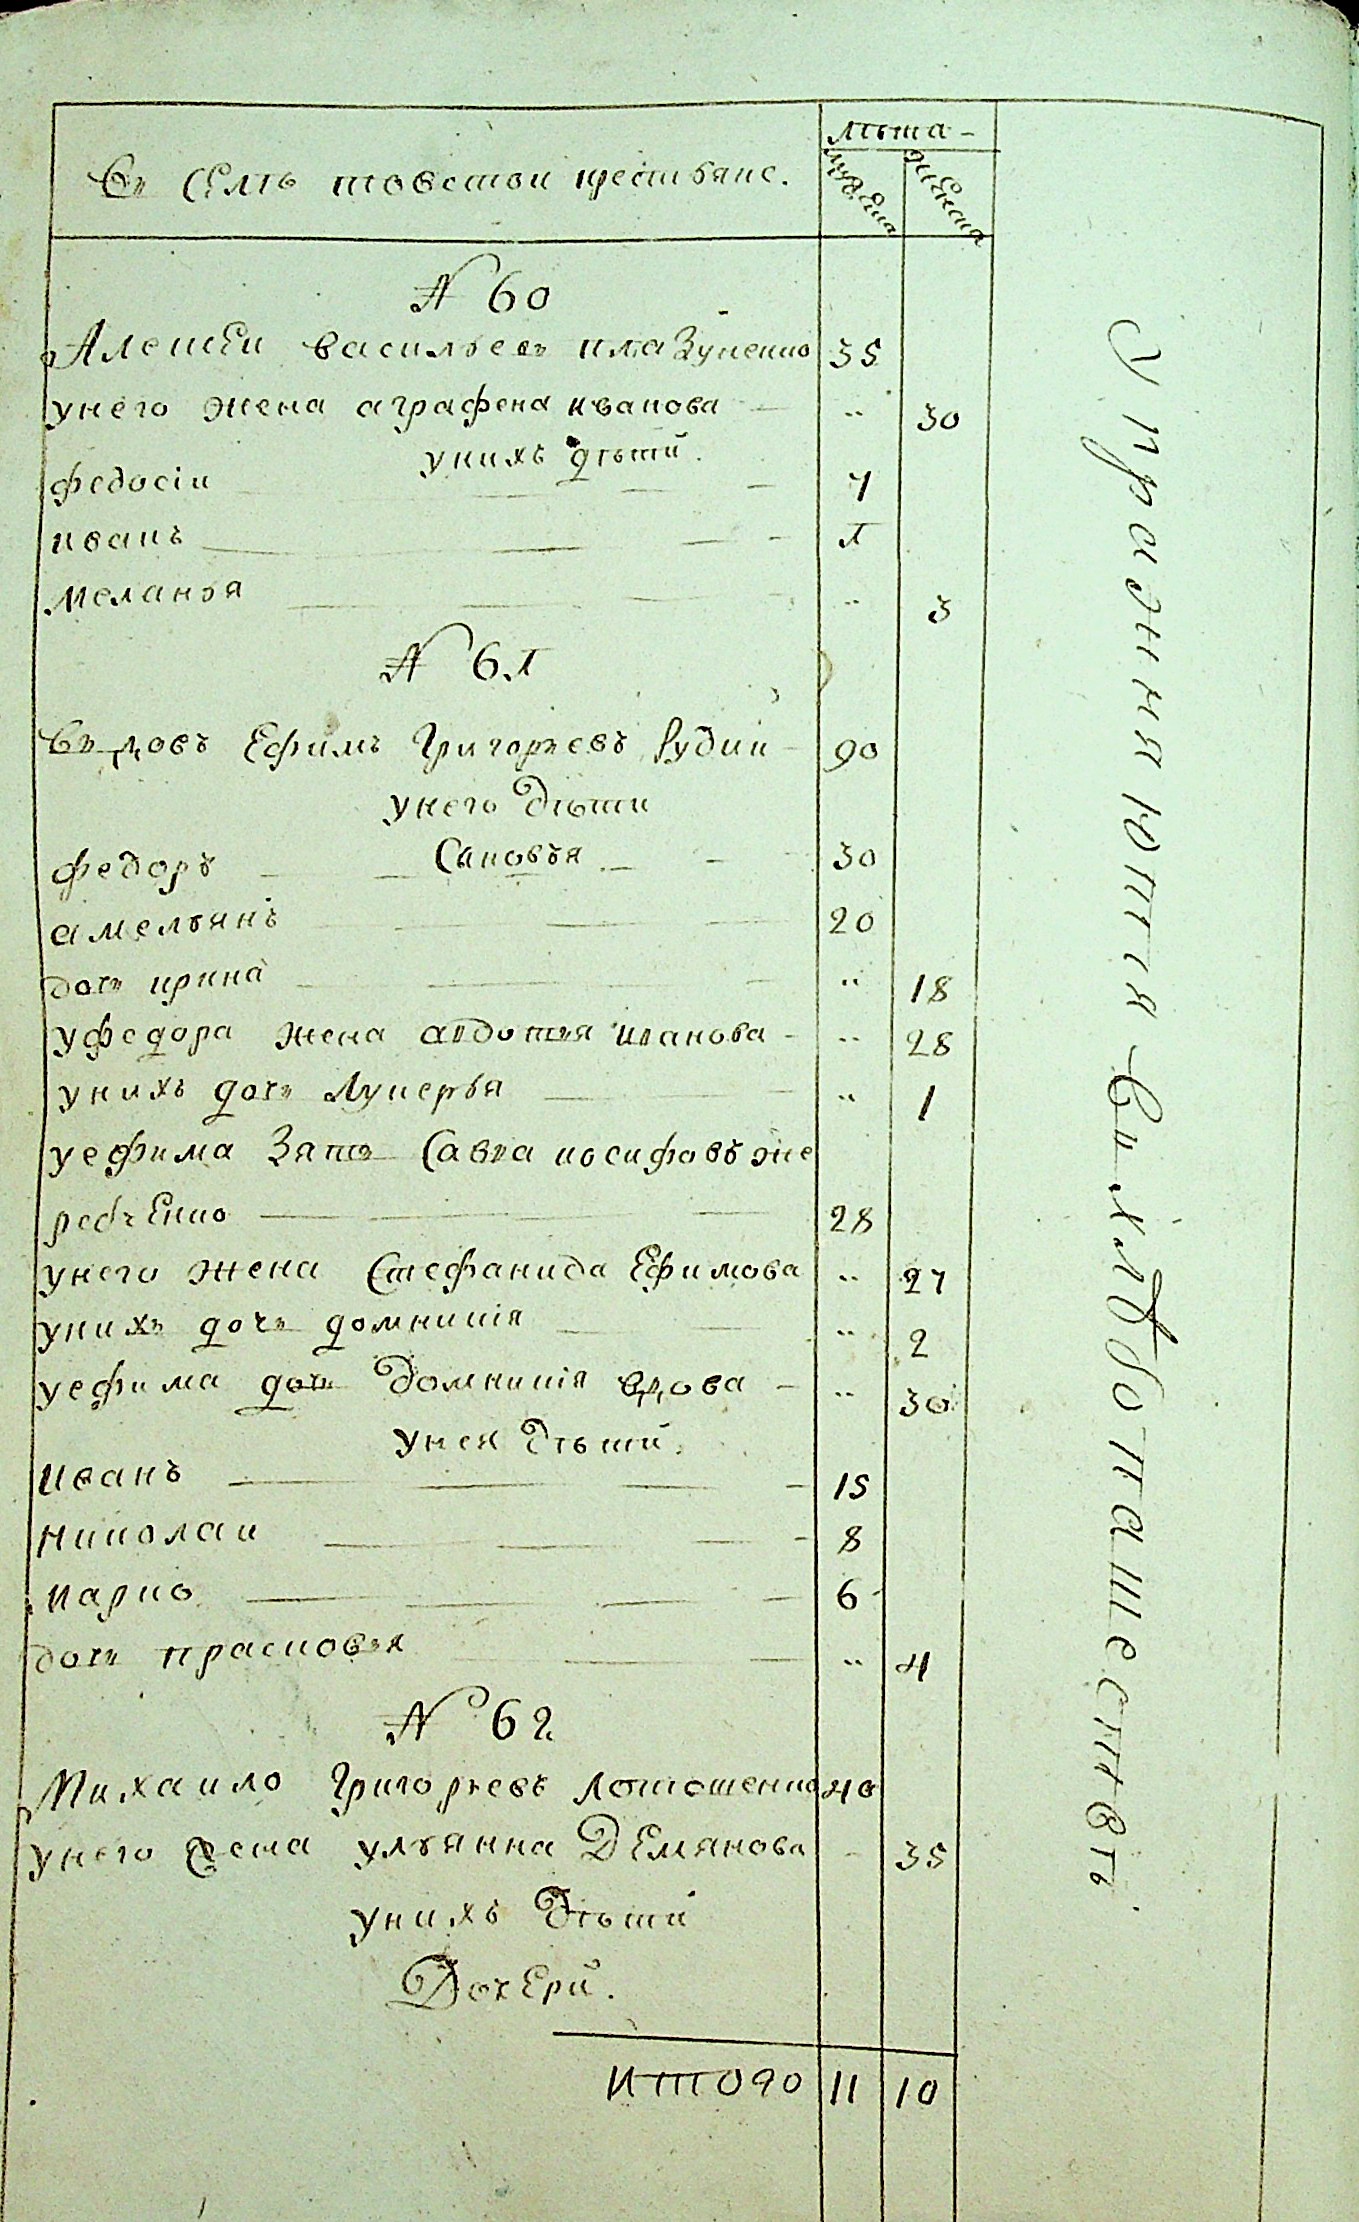 Въ селѣ товстои крестьяне.
лѣта
мужеска
женска
N 60
Алексеи васильевъ кла зуненко 35
унего жена аграфена иванова " 30
унихъ дѣти.
федосіи 7
иванъ 1
меланья " 3
N 61
въдовъ Ефимъ Григорьевъ Рудии 90
унего дѣти
Сыновья
федоръ 30
амельянъ 20
дочь ирина " 18
уфедора жена авдотья иванова " 28
унихъ дочь Лукерья " 1
уефима Зять Савка иосифовъ же
ребченко 28
унего жена Стефанида Ефимова " 27
унихъ дочь домникія " 2
уефима дочь Домникія вдова " 30
унея дѣти.
иванъ 15
николаи 8
карпо 6
дочь прасковья " 4
N 62
Михаило Григорьевъ лотошенко 40
унего жена ульянна Демянова 35
унихъ дѣти
Дочери.
итого 11 10
Упражняются въ хлѣбопашествѣ.